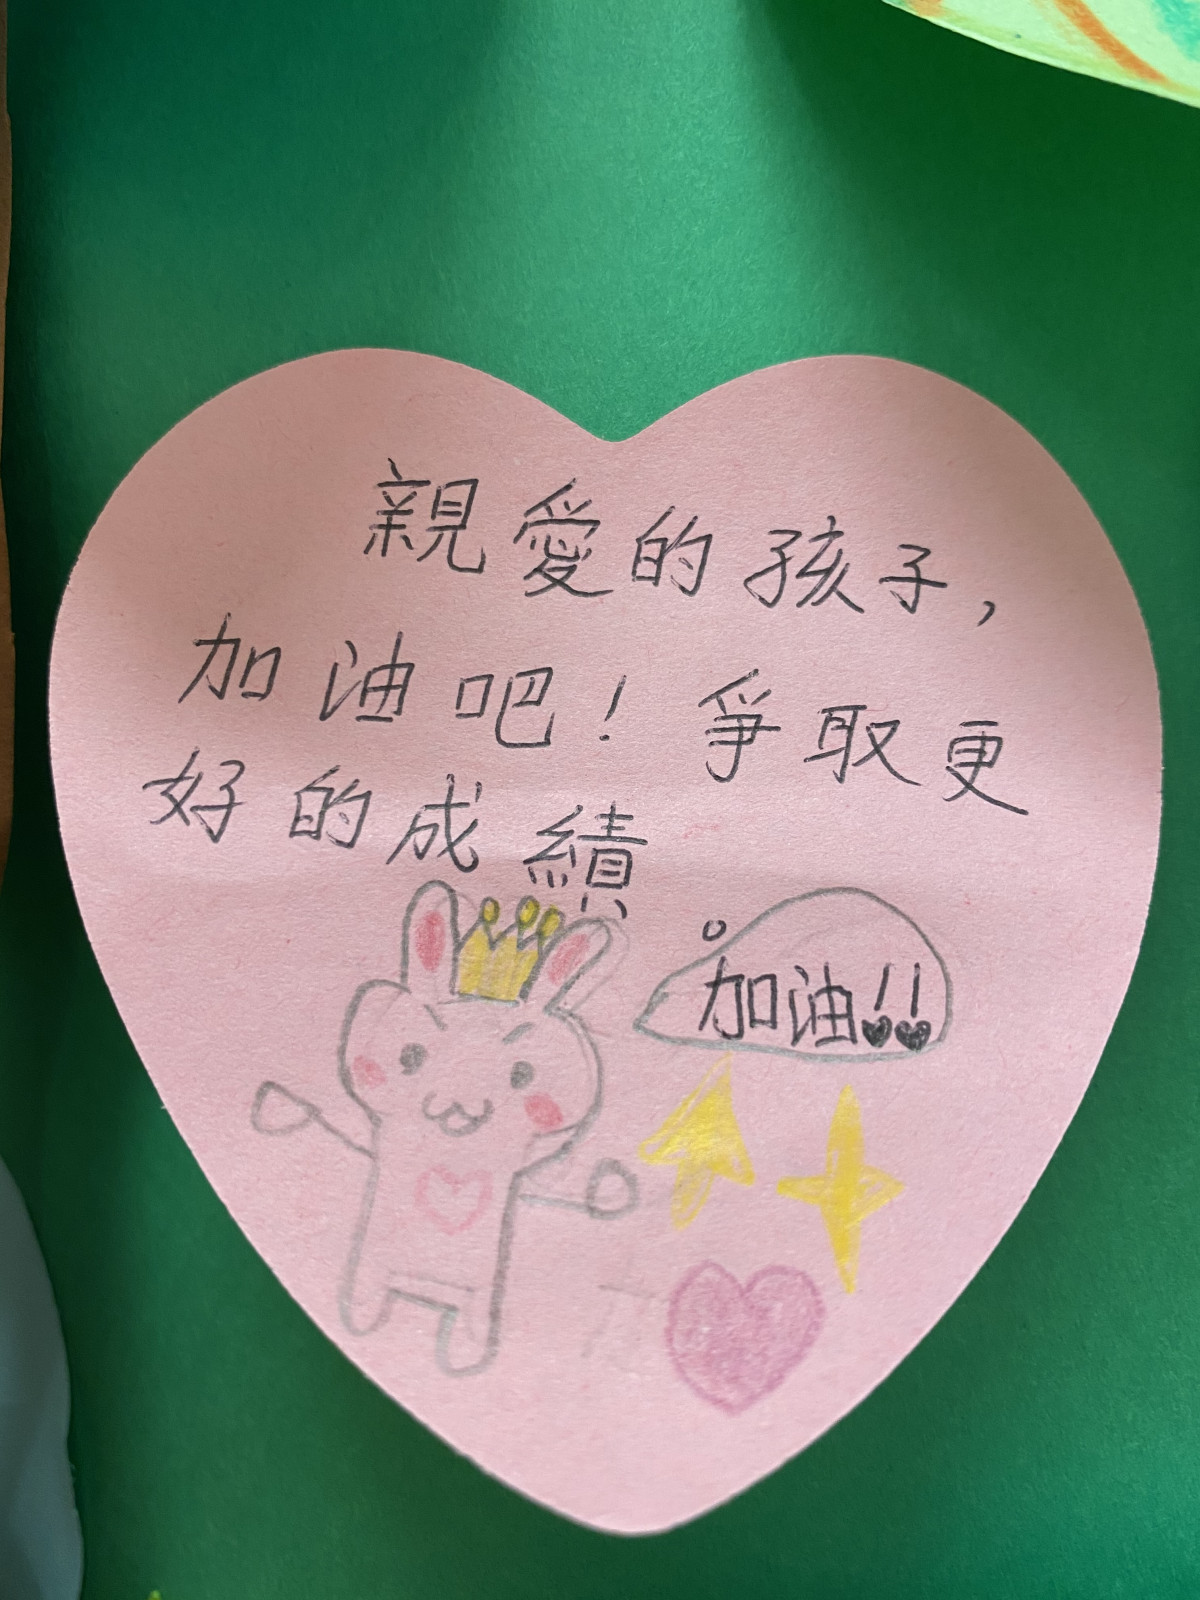 親愛的孩子,
加油吧!爭取更
好的成績。
加油!!